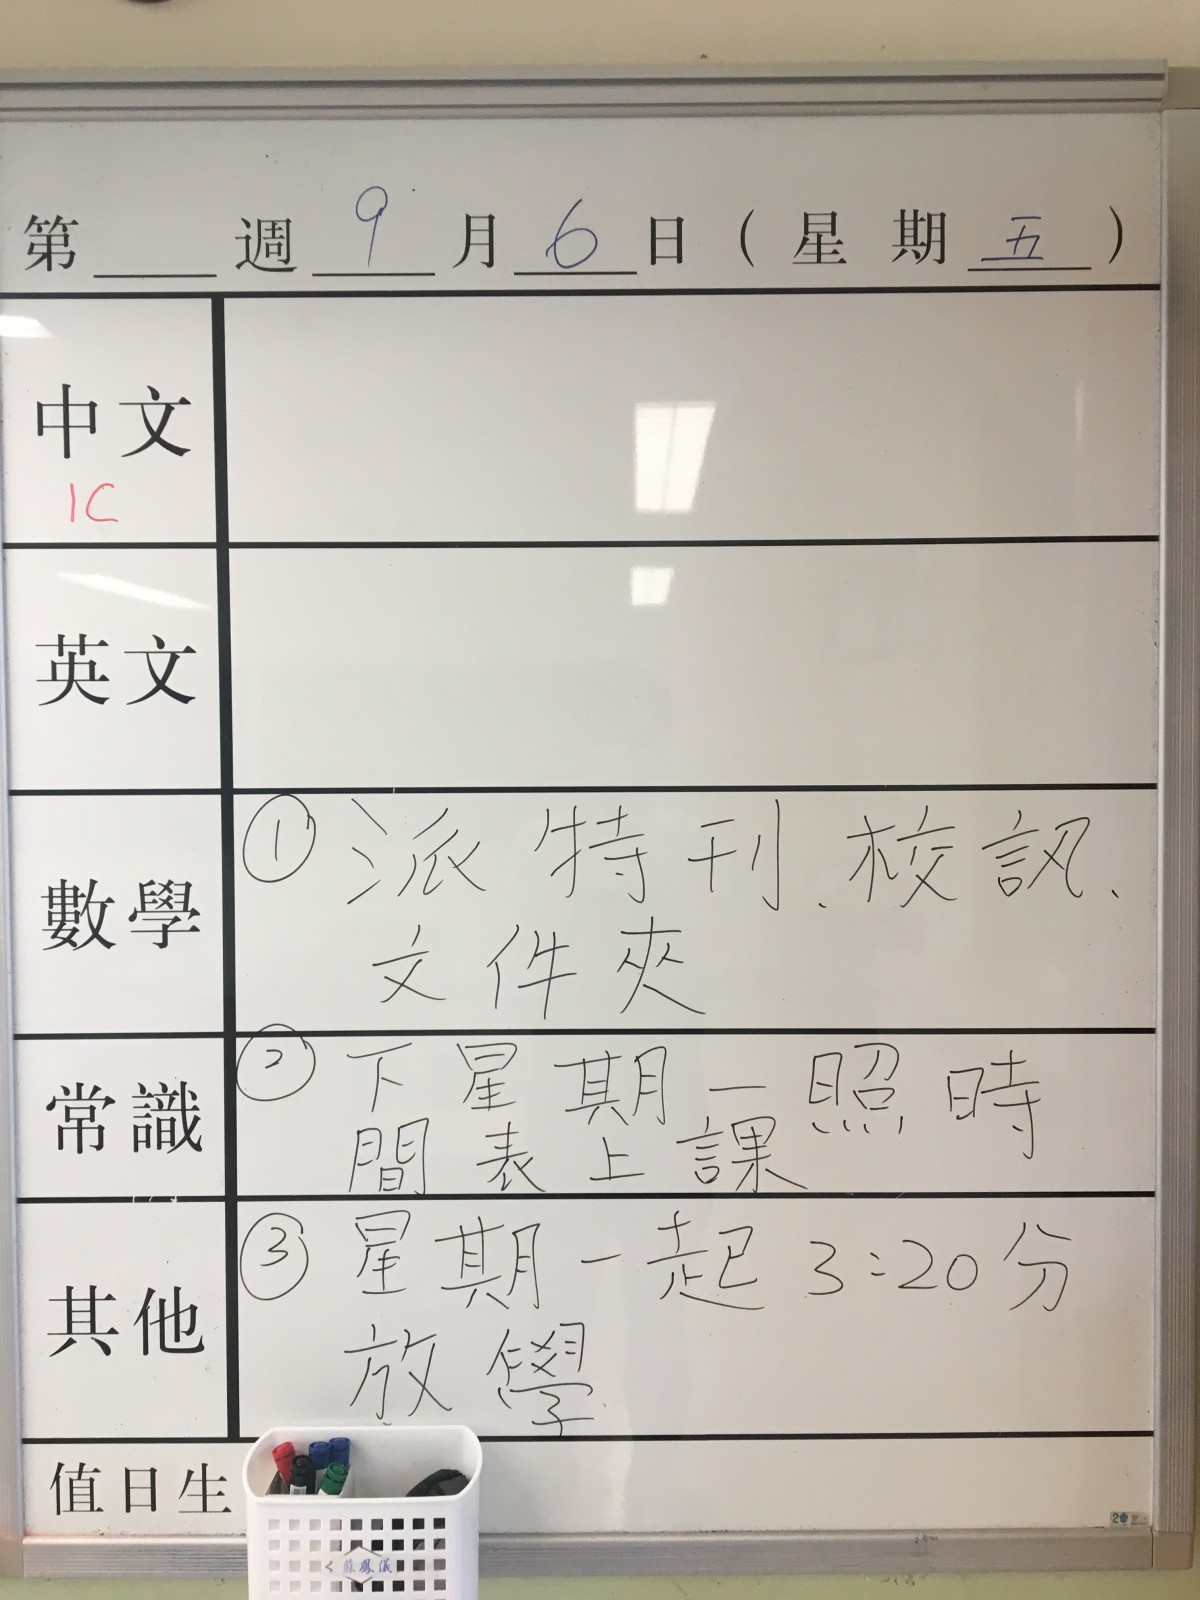 第 週 9 月 6 日 ( 星 期 五 )
中文
1C
英文
數學
① 派特刊、校訊、
文件夾
常識
② 下星期一照時
間表上課
其他
③ 星期一起 3:20分
放學
值日生
蘇鳳儀